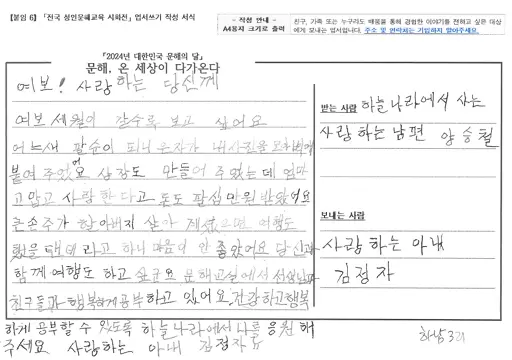 [붙임 6] 「전국 성인문해교육 시화전」 엽서쓰기 작성 서식
- 작성 안내 -
A4용지 크기로 출력
친구, 가족 또는 누구라도 배움을 통해 경험한 이야기를 전하고 싶은 대상
에게 보내는 엽서입니다. 주소 및 연락처는 기입하지 말아주세요.
『2024년 대한민국 문해의 달』
문해, 온 세상이 다가온다
여보! 사랑하는 당신께
여보 세월이 갈수록 보고 싶어요
어느새 팔순이 되니 손자가 내 사진을
붙여 주었어요 상장도 만들어 주었는데 엄마
고맙고 사랑한다고 돈도 팔십만원 받았어요
큰손주가 할아버지 살아 계셨으면 여행도
했을텐데 라고 하니 마음이 안 좋았어요 당신과
함께 여행도 하고 싶군요 문해교실에서 선생님과
친구들과 행복하게 공부하고 있어요 건강하고 행복
하게 공부할 수 있도록 하늘나라에서 나를 응원 해
주세요 사랑하는 아내 김정자
받는 사람 하늘나라에서 사는
사랑하는 남편 양승철
보내는 사람
사랑하는 아내
김정자
하남 3리